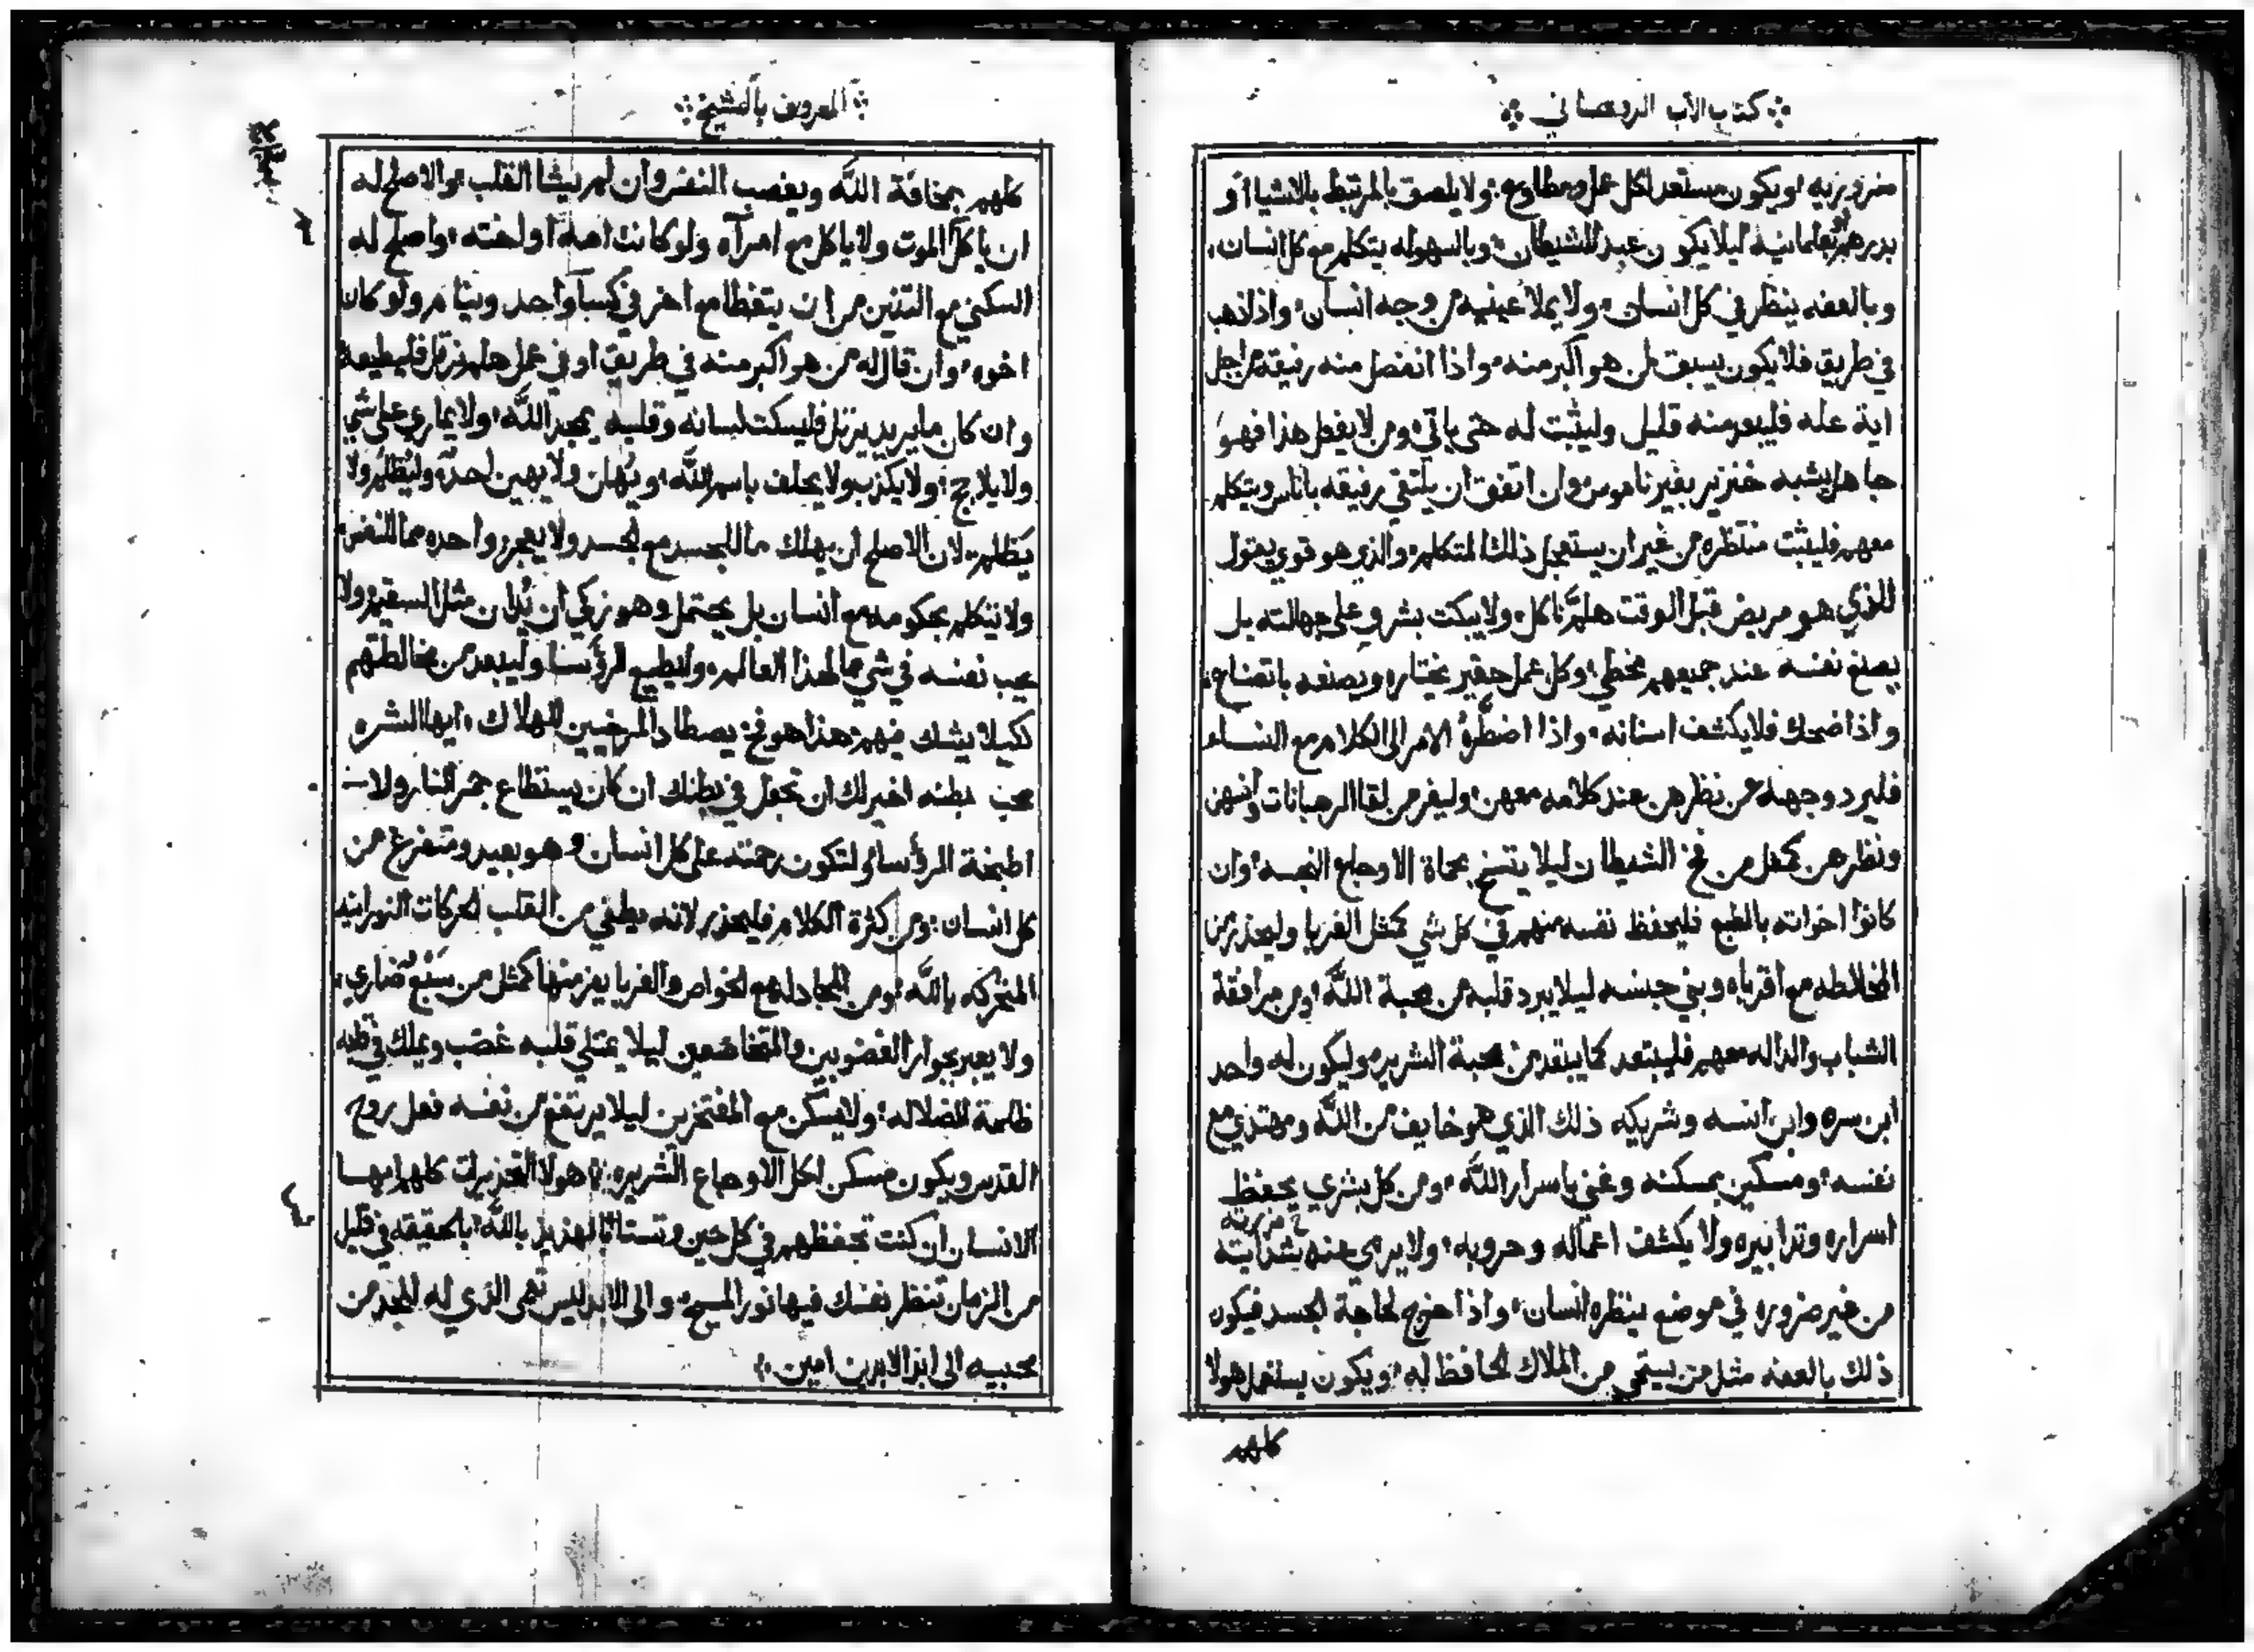 كتاب الاب الروحاني
مزوزيه ويكون مستعد لكل عمل ومطاوع ولا يلصق بالمرتبط بالاشيا او
ليلا يكون عبد للشيطان وبالسهوله يتكلم مع كل انسان
وبالعفه ينظر في كل انسان ولا يملا عينيه من وجه انسان واذا ذهب
في طريق فلا يكون يسبق لمن هو اكبر منه واذا انفصل منه رفيقه من اجل
اية عله فليبعد منه قليل وليثبت له حتى ياتي ومن لا يفعل هذا فهو
جاهل يشبه خنزير بغير ناموس وان اتفق ان يلتقي رفيقه باناس ويتكلم
معهم فليثبت منتظره من غير ان يستعجل ذلك المتكلم والذي هو قوي يقول
للذي هو مريض قبل الوقت هلم ناكل ولا يبكت بشر على جهالته بل
يصنع نفسه عند جميعهم مخطي وكل عمل حقير يختاره ويصنعه باتضاع
واذا ضحك فلا يكشف اسنانه واذا اضطره الامر الى الكلام مع النسا
فليرد وجهه من نظرهن عند كلامه معهن وليفر من لقا الرهبانات وانسهن
ونظرهن كمثل من فخ الشيطان ليلا يتسخ بحماة الاوجاع النجسه وان
كانوا اخواته بالطبع فليحفظ نفسه منهم في كل شي كمثل الغربا وليحذر من
المخلاطه مع اقرباه وبني جنسه ليلا يبرد قلبه من محبة اللّه ومن مرافقة
الشباب والداله معهم فليبتعد كما يبتعد من محبة الشرير وليكون له واحد
ابن سره وابن انسه وشريكه ذلك الذي هو خايف من اللّه ومهتذي مع
نفسه ومسكين بمسكنه وغني باسرار اللّه ومن كل بشري يحفظ
اسراره وتدابيره ولا يكشف اعماله وحروبه ولا يرمي عنه
من غير ضروره في موضع ينظره انسان واذا خرج لحاجة الجسد فيكون
ذلك بالعفه مثل من يستحي من الملاك الحافظ له ويكون يستعمل هولا
كلهم
المعروف بالشيخ
كلهم بمخافة اللّه ويغصب النفس وان لم يشا القلب والاصلح له
ان ياكل الموت ولا ياكل مع امرآه ولو كانت امه او اخته واصلح له
السكني مع التنين من ان يتغطا مع اخر في كسآ واحد وينام ولو كان
اخوه وان قال له من هو اكبر منه في طريق او في عمل هلم نزمل فليطيعه
وان كان ما يريد يزمل فليسكت لسانه وقلبه يمجد اللّه ولا يماري على شي
ولا يلاجج ولا يكذب ولا يحلف باسم اللّه ويُهان ولا يهين احد وليُظلم ولا
يَظلم لان الاصلح ان يهلك ما للجسد مع الجسد ولا يعجز واحده مما للنفس
ولا يتكلم بحكومه مع انسان بل يحتمل وهو زكي ان يُدان مثل السقيم ولا
يحب نفسه في شي مما لهذا العالم وليطيع الرؤسا وليبعد من مخالطتهم
ككيلا يشك فيهم هذا هو فخ يصطاد المرخيين للهلاك ايها الشره
محب بطنه اخير لك ان تجعل في بطنك ان كان يستطاع جمر النار ولا
اطبخة الرؤسا ولتكون رحمته على كل انسان وهو بعيد ومتفرغ من
كل انسان ومن كثرة الكلام فليحذر لانه يطفي من القلب الحركات النورانيه
المتحركه باللّه ومن المجادله مع الخواص والغربا يفر منها كمثل من سَبُع ضاري
ولا يعبر بجوار الغضوبين والمتخاصمين ليلا يمتلي قلبه غضب ويملك في قلبه
ظلمة الضلاله ولا يسكن مع المفتخرين ليلا يرتفع من نفسه فعل روح
القدس ويكون مسكن لكل الاوجاع الشريره هولا التحذيرات كلهم ايها
الانسان ان كنت تحفظهم في كل حين باللّه بالحقيقه في قليل
من الزمان تنظر نفسك فيها نور المسيح والى الابد ليس تعمى الذي له المجد من
محبيه الى ابد الابدين امين